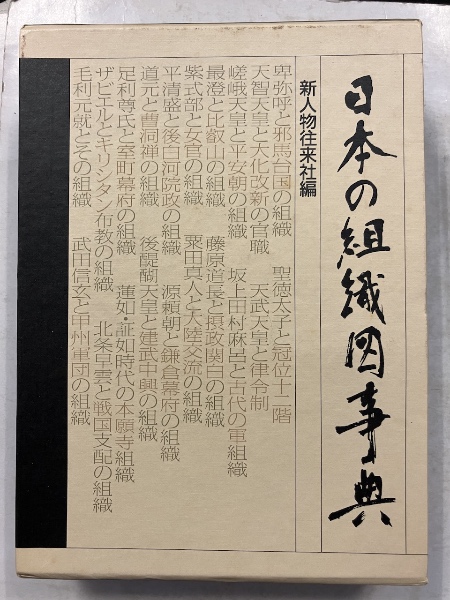 日本の組織図事典
新人物往来社編
卑弥呼と邪馬台国の組織　聖徳太子と冠位十二階
天智天皇と大化改新の官職　天武天皇と律令制
嵯峨天皇と平安朝の組織　坂上田村麻呂と古代の軍組織
最澄と比叡山の組織　藤原道長と摂政関白の組織
紫式部と女官の組織　粟田真人と大陸交流の組織
平清盛と後白河院政の組織　源頼朝と鎌倉幕府の組織
道元と曹洞禅の組織　後醍醐天皇と建武中興の組織
足利尊氏と室町幕府の組織　蓮如・証如時代の本願寺組織
ザビエルとキリシタン布教の組織　北条早雲と戦国支配の組織
毛利元就とその組織　武田信玄と甲州軍団の組織